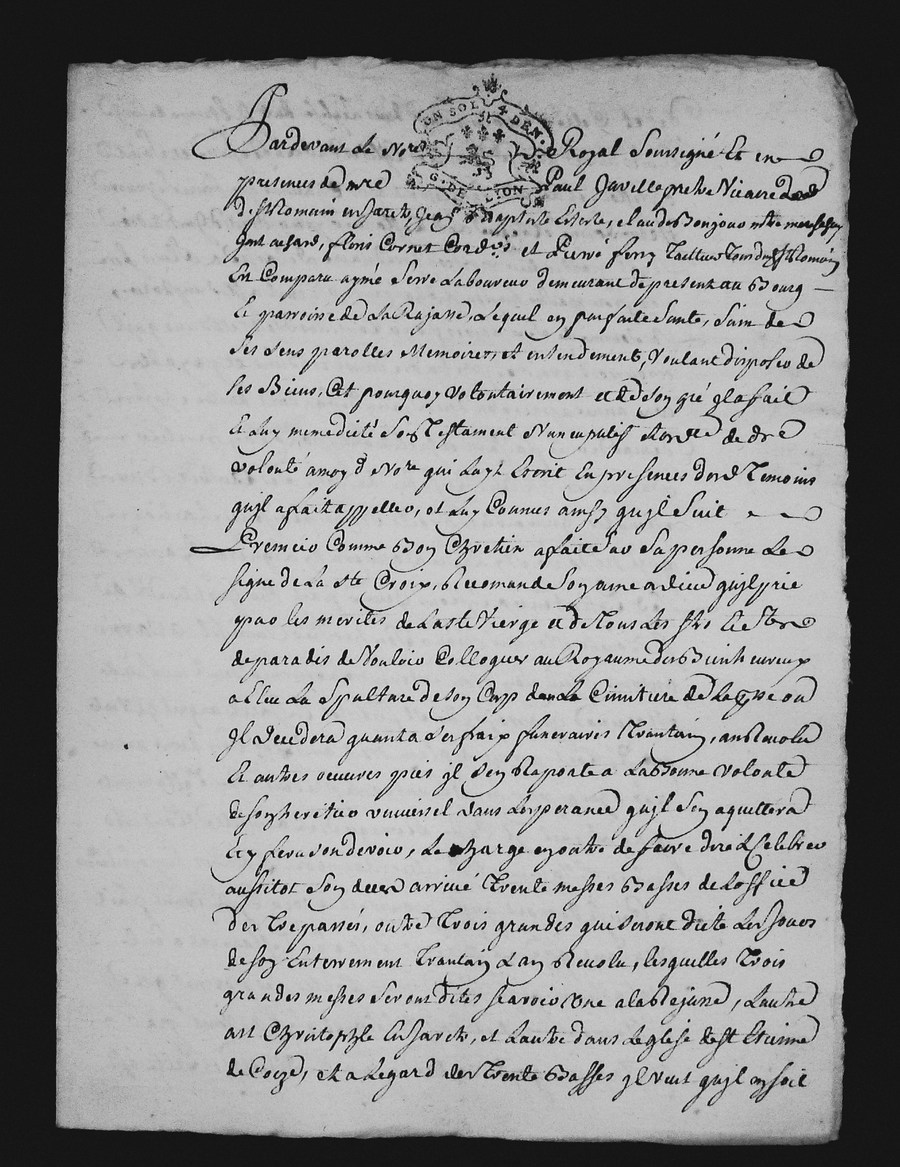 UN SOL 4 DEN.
G. DE LION
Pardevant Le Nore Royal Soussigné Et en
presences de mre Paul Javelle pretre Vicaire
de St Romain en Jarets, Jean Baptiste Et Claude Bonjour mtre
floris Cornet Cord. et Pierre ferry Tailleur St Romain
Est Comparu aymé Serre Laboureur demeurant de present au Bourg
Et parroisse de La Rajasse, Lequel en parfaite Sante, Sain de
Ses Sens parolles Memoires, et entendement, Voulant disposer de
Ses Biens, Cest pourquoy volontairement et de Son gré jl a fait
Et Luy meme dicté Son Testament Nuncupatif et de dre
volonté a moy d Nore qui Luy Ecrit En presences Temoins
qujl a fait appeller, et Luy Connus ainsy qujl Suit
Premier Comme Bon Chretien a fait Sur Sa personne Le
Signe de La Ste Croix, Recomande Son ame a dieu qujl prie
par les merites de La Ste Vierge et de Tous Les Sts Et Stes
de paradis de Vouloir Colloquer au Royaume des Bienheureux
a Eleu La Spulture de Son Corp dans Le Cimitiere de La psse ou
jl decedera quant a Ses fraix funeraires Trantain, an Revolu
Et autres oeuvres pies jl Sen Raporte a La Bonne volonté
de Son heretier vniversel dans Lesperance qujl Sen aquittera
Et y fera Son devoir, Le charge en outre de faire dire Et Celebrer
aussitot Son deces arrivé Trente messes Basses de Loffice
des Trepassés, outre Trois grandes qui Seront dite Les Jours
de Son Enterrement Trantain Lan Revolu, lesquelles Trois
grandes messes Seront dites Scavoir Vne a La Rejasse, Lautre
a St Christophle En Jarets, et Lautre dans Leglise de St Etienne
de Coize, et a Legard des Trente Basses jl veut qujl en soit